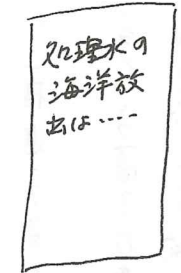 処理水の
海洋放
出は・・・・